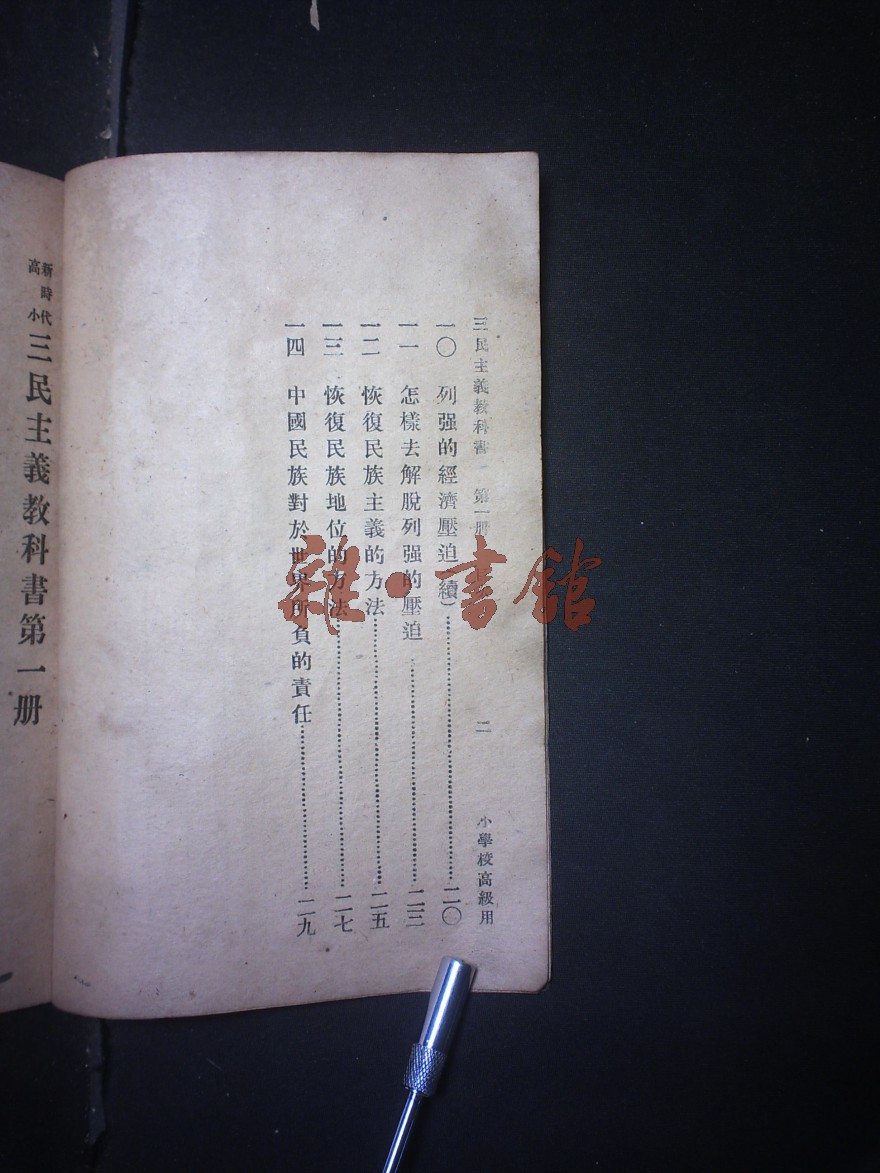 三民主義教科書 第一册 二 小學校高級用
一〇 列强的經濟壓迫(續)………二〇
一一 怎樣去解脫列强的壓迫………二三
一二 恢復民族主義的方法………二五
一三 恢復民族地位的方法………二七
一四 中國民族對於世界所負的責任………二九
新時代
高小
三民主義教科書第一册
雜·書館